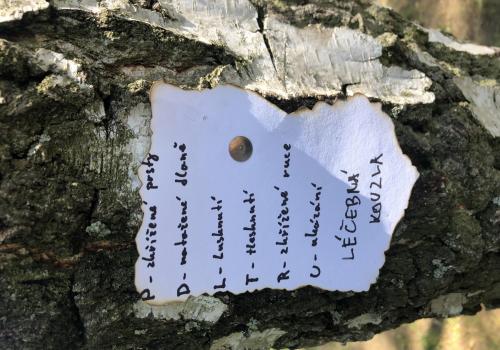 P - zkřížené prsty
D - natažené dlaně
L - lusknutí
T - tlesknutí
R - zkřížené ruce
U - ukázání
LÉČEBNÁ
KOUZLA